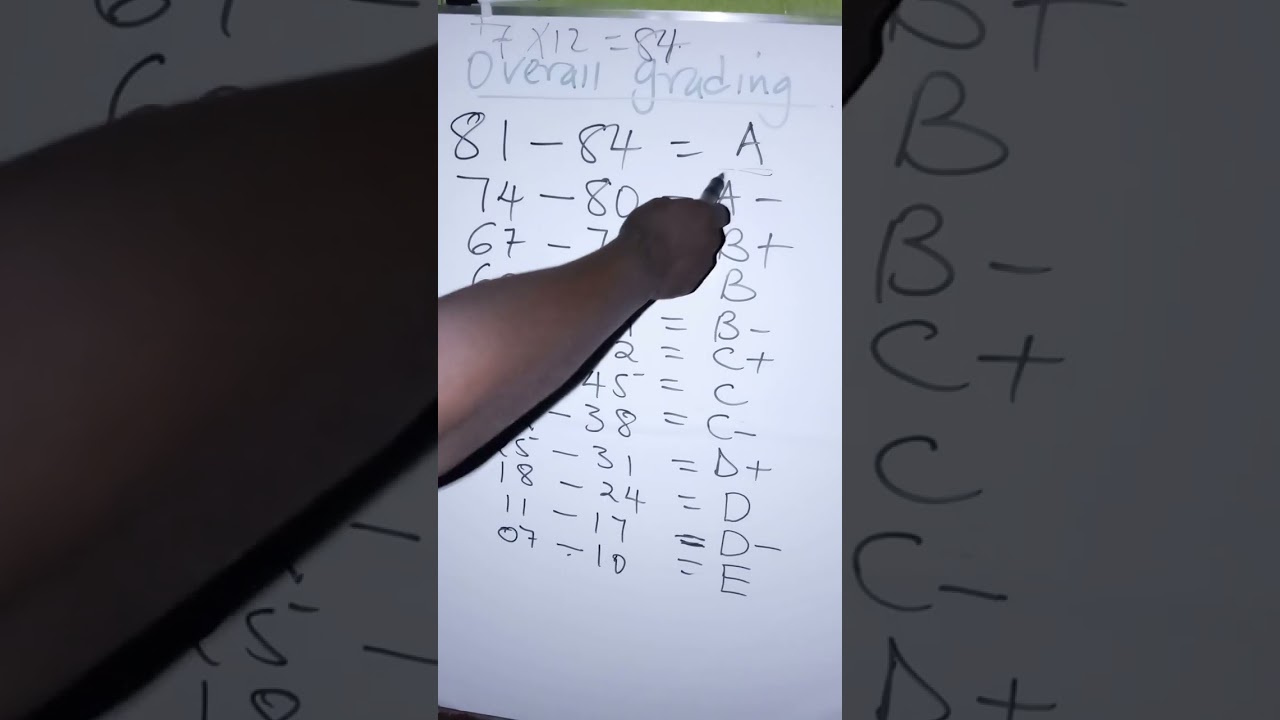 7 x 12 = 84
Overall grading
81 - 84 = A
74 - 80 = A -
67 - = B+
B
= B -
= C+
45 = C
- 38 = C-
- 31 = D+
18 - 24 = D
11 - 17 = D-
07 - 10 = E